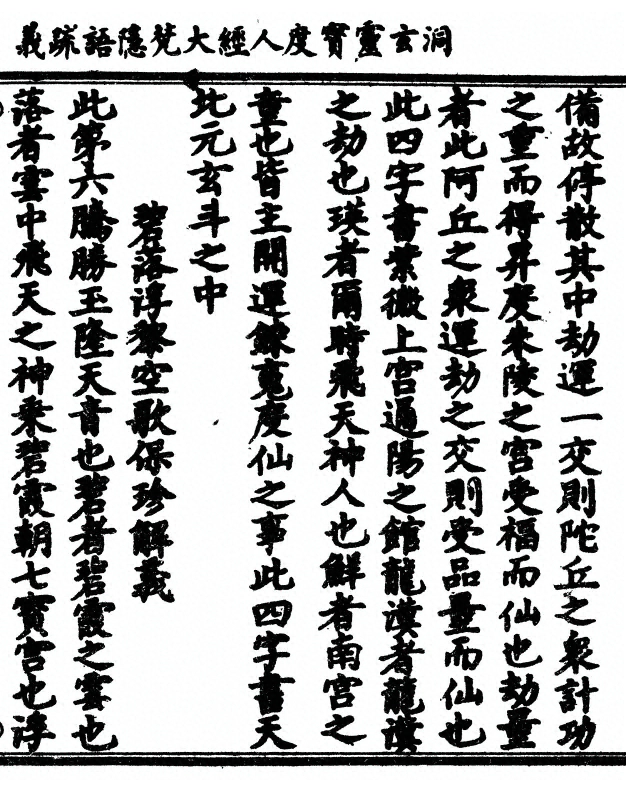 洞玄靈寶度人經大梵隱語疏義
備故停散其中劫運一交則陀丘之衆計功
之重而得昇度朱陵之宮受福而仙也劫量
者此阿丘之衆運劫之交則受品量而仙也
此四字書紫微上宮通陽之館龍漢者龍漢
之劫也瑛者爾時飛天神人也鮮者南宮之
童也皆主開運鍊䰟度仙之事此四字書天
北元玄斗之中
碧落浮黎空歌保珍解義
此第六騰勝玉隆天音也碧者碧霞之雲也
落者雲中飛天之神乘碧霞朝七寶宮也浮